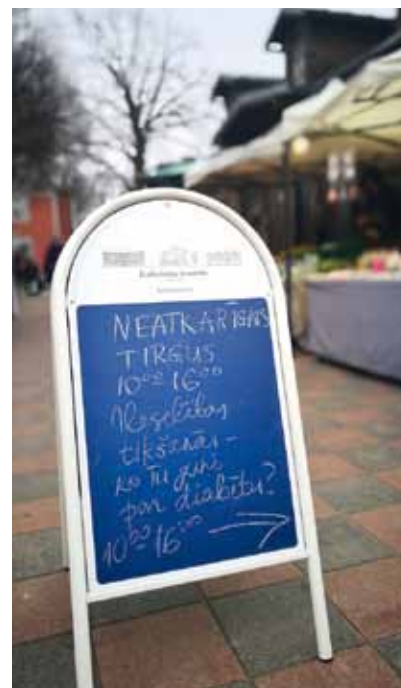 NEATKARĪBAS
TIRGUS
10⁰⁰ 16⁰⁰
Veselības
tikšanās –
ko Tu zini
par diabētu?
10⁰⁰-16⁰⁰